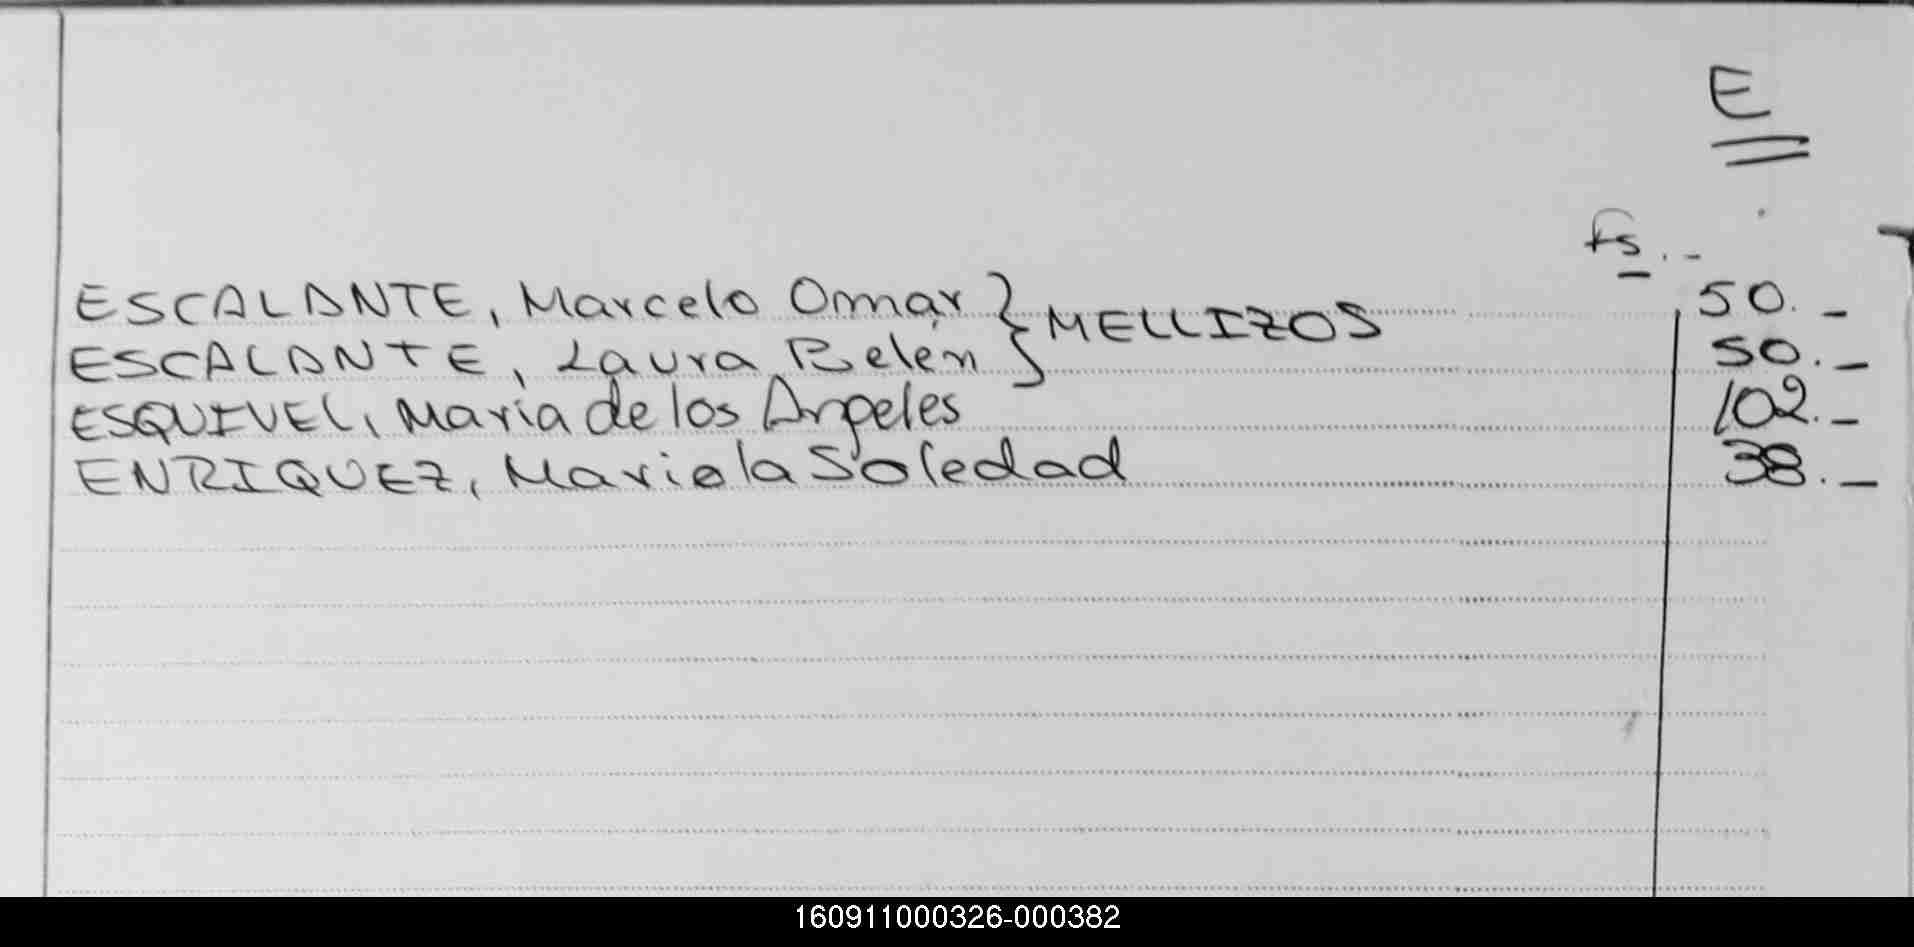 E
Fs..-
ESCALANTE, Marcelo Omar } MELLIZOS 50.-
ESCALANTE, Laura Belen 50.-
ESQUIVEL, Maria de los Angeles 102.-
ENRIQUEZ, Mariela Soledad 38.-
160911000326-000382